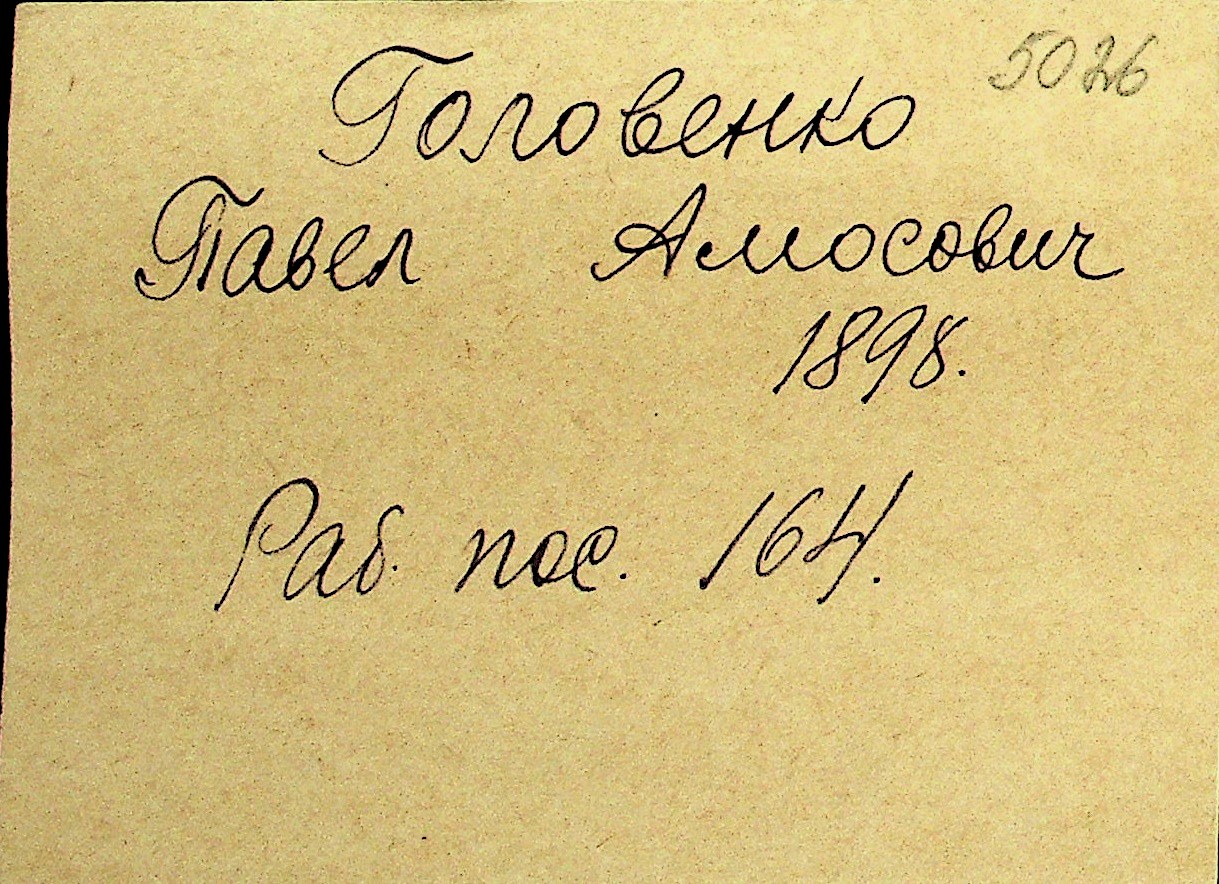 5026
Головенко
Павел Амосович
1898.
Раб. пос. 164.